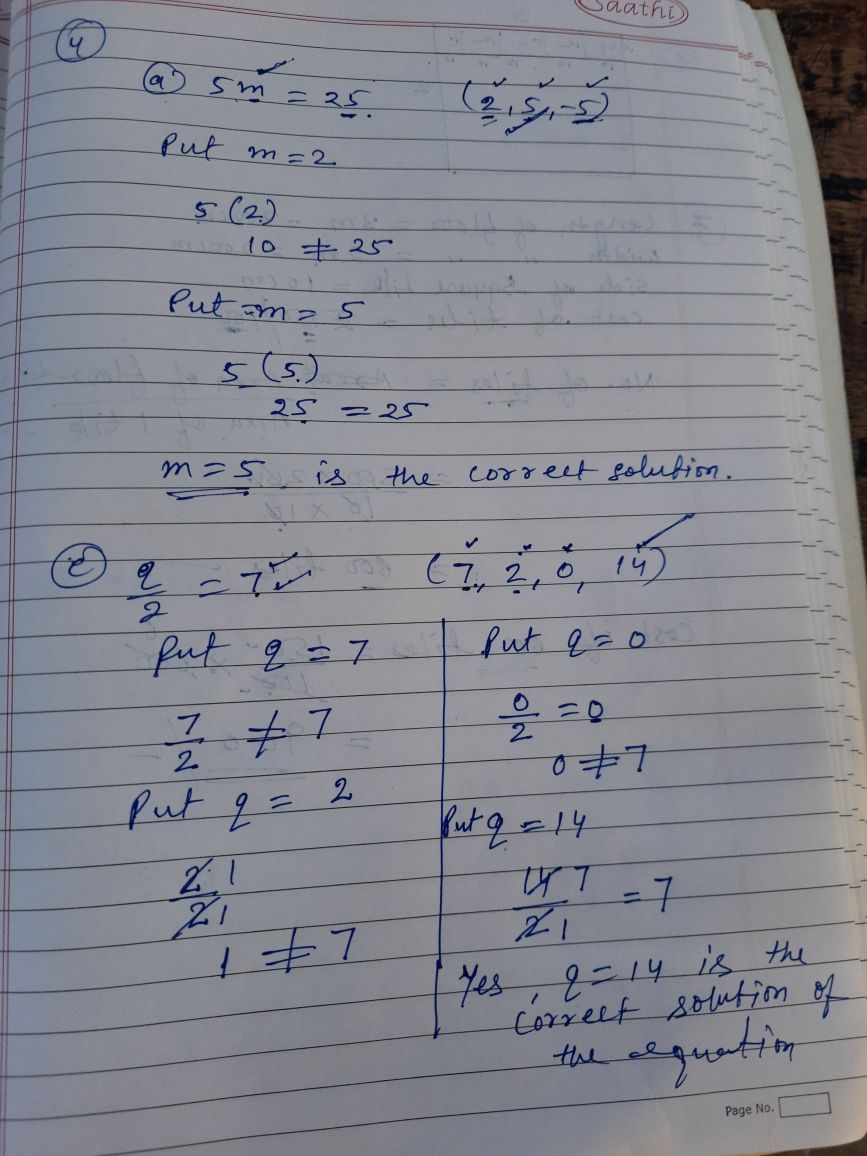 Saathi
4
(a) 5m = 25 (2, 5, -5)
Put m = 2
5(2)
10 ≠ 25
Put m = 5
5(5)
25 = 25
m = 5 is the correct solution.
(c) q/2 = 7 (7, 2, 0, 14)
Put q = 7
7/2 ≠ 7
Put q = 2
2/2 1/1
1 ≠ 7
Put q = 0
0/2 = 0
0 ≠ 7
Put q = 14
14/2 7/1 = 7
Yes, q = 14 is the
correct solution of
the equation
Page No.